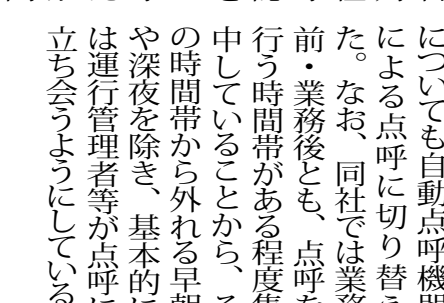 についても自動点呼機
による点呼に切り替
た。なお、同社では業務
前・業務後とも、点呼を
行う時間帯がある程度集
中していることから、そ
の時間帯から外れる早朝
や深夜を除き、基本的に
は運行管理者等が点呼に
立ち会うようにしている